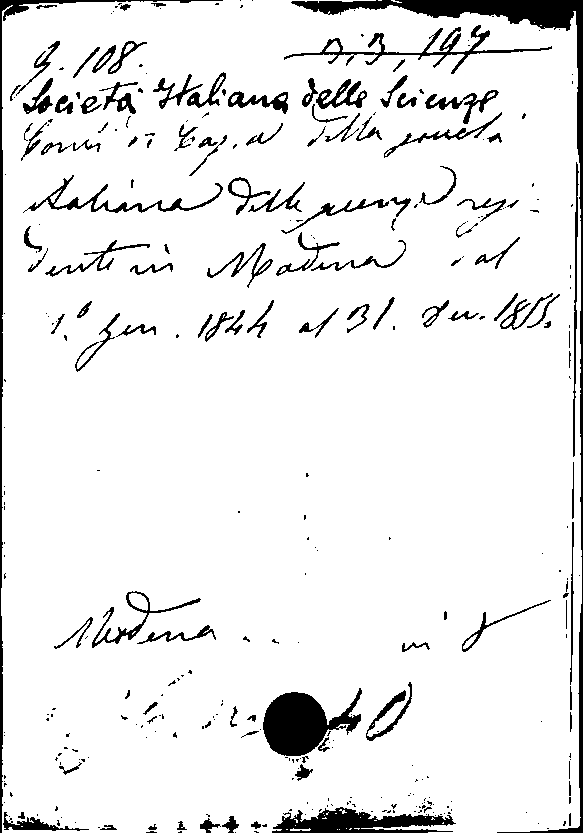 g. 108. 3,3,197
Società Italiana delle Scienze
Conti di Cassa della società
italiana delle scienze resi-
dente in Modena dal
1.º Gen. 1844 al 31. Dec. 1855.
Modena in f
40